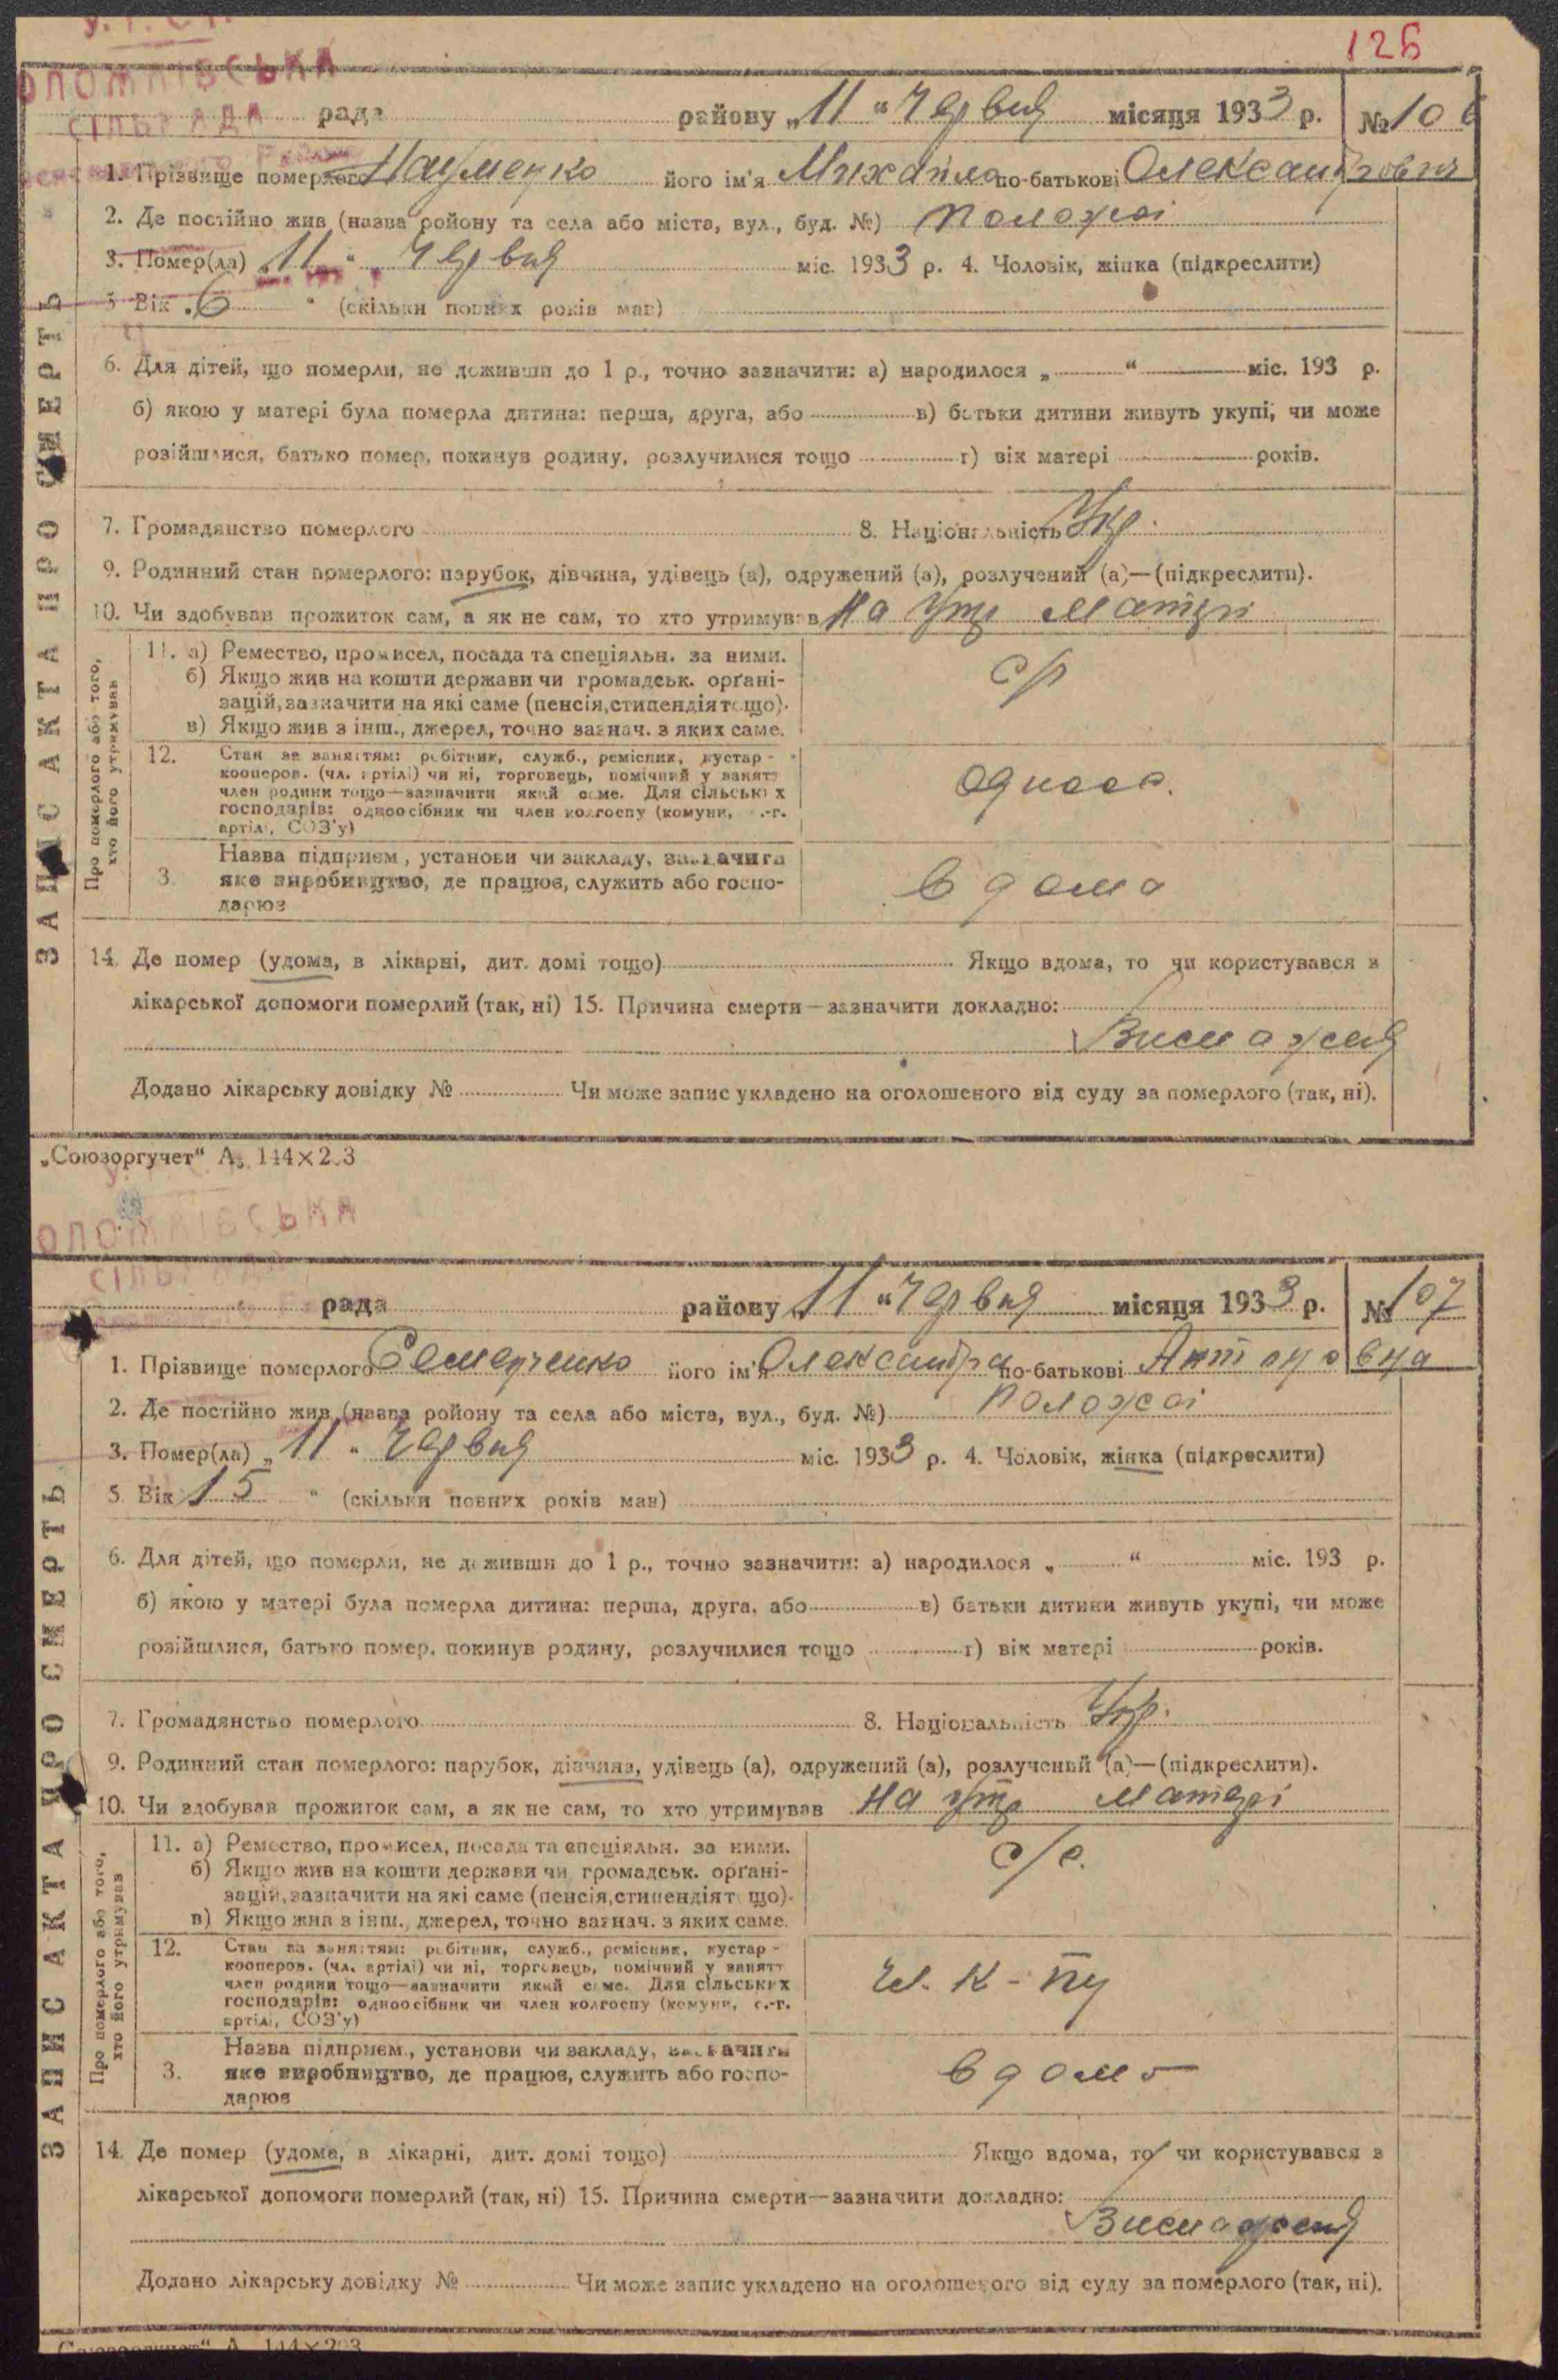 126
СІЛЬРАДА
рада району „11“ Червня місяця 1933 р. № 106
1. Прізвище померлого Науменко його ім'я Михайло по-батькові Олександрович
2. Де постійно жив (назва ройону та села або міста, вул., буд. №) Положаі
3. Помер(ла) „11“ Червня міс. 1933 р. 4. Чоловік, жінка (підкреслити)
5 Вік 6 “ (скільки повних років мав)
6. Для дітей, що померли, не доживши до 1 р., точно зазначити: а) народилося „ “ міс. 193 р.
б) якою у матері була померла дитина: перша, друга, або в) батьки дитини живуть укупі, чи може
розійшлися, батько помер, покинув родину, розлучилися тощо г) вік матері років.
7. Громадянство померлого 8. Національність Укр.
9. Родинний стан померлого: парубок, дівчина, удівець (а), одружений (а), розлучений (а)—(підкреслити).
10. Чи здобував прожиток сам, а як не сам, то хто утримував На утр матері
ЗАПИС АКТА ПРО СМЕРТЬ
Про померлого або того,
хто його утримував
11. а) Ремество, промисел, посада та спеціяльн. за ними. с/р
б) Якщо жив на кошти держави чи громадськ. орґані-
зацій, зазначити на які саме (пенсія, стипендія тощо).
в) Якщо жив з інш., джерел, точно зазнач. з яких саме.
12. Стан за заняттям: робітник, служб., ремісник, кустар -
кооперов. (чл. артілі) чи ні, торговець, помічний у занятт
член родини тощо—зазначити який саме. Для сільських
господарів: одноосібник чи член колгоспу (комуни, с.-г.
артілі, СОЗ'у)
Одноос.
Назва підприєм., установи чи закладу, зазначити
3. яке виробництво, де працює, служить або госпо-
дарює
вдома
14. Де помер (удома, в лікарні, дит. домі тощо) Якщо вдома, то чи користувався з
лікарської допомоги померлий (так, ні) 15. Причина смерти—зазначити докладно:
Виснаженя
Додано лікарську довідку № Чи може запис укладено на оголошеного від суду за померлого (так, ні).
„Союзоргучет“ А₅ 144×203
рада району „11“ Червня місяця 1933 р. № 107
1. Прізвище померлого Семенченко його ім'я Олександра по-батькові Антоновна
2. Де постійно жив (назва ройону та села або міста, вул., буд. №) Положаі
3. Помер(ла) „11“ Червня міс. 1933 р. 4. Чоловік, жінка (підкреслити)
5 Вік 15 “ (скільки повних років мав)
6. Для дітей, що померли, не доживши до 1 р., точно зазначити: а) народилося „ “ міс. 193 р.
б) якою у матері була померла дитина: перша, друга, або в) батьки дитини живуть укупі, чи може
розійшлися, батько помер, покинув родину, розлучилися тощо г) вік матері років.
7. Громадянство померлого 8. Національність Укр.
9. Родинний стан померлого: парубок, дівчина, удівець (а), одружений (а), розлучений (а)—(підкреслити).
10. Чи здобував прожиток сам, а як не сам, то хто утримував На утр матері
ЗАПИС АКТА ПРО СМЕРТЬ
Про померлого або того,
хто його утримував
11. а) Ремество, промисел, посада та спеціяльн. за ними. с/г.
б) Якщо жив на кошти держави чи громадськ. орґані-
зацій, зазначити на які саме (пенсія, стипендія тощо).
в) Якщо жив з інш., джерел, точно зазнач. з яких саме.
12. Стан за заняттям: робітник, служб., ремісник, кустар -
кооперов. (чл. артілі) чи ні, торговець, помічний у занятт
член родини тощо—зазначити який саме. Для сільських
господарів: одноосібник чи член колгоспу (комуни, с.-г.
артілі, СОЗ'у)
чл. к-пу
Назва підприєм., установи чи закладу, зазначити
3. яке виробництво, де працює, служить або госпо-
дарює
вдома
14. Де помер (удома, в лікарні, дит. домі тощо) Якщо вдома, то чи користувався з
лікарської допомоги померлий (так, ні) 15. Причина смерти—зазначити докладно:
Виснаженя
Додано лікарську довідку № Чи може запис укладено на оголошеного від суду за померлого (так, ні).
„Союзоргучет“ А₅ 144×203